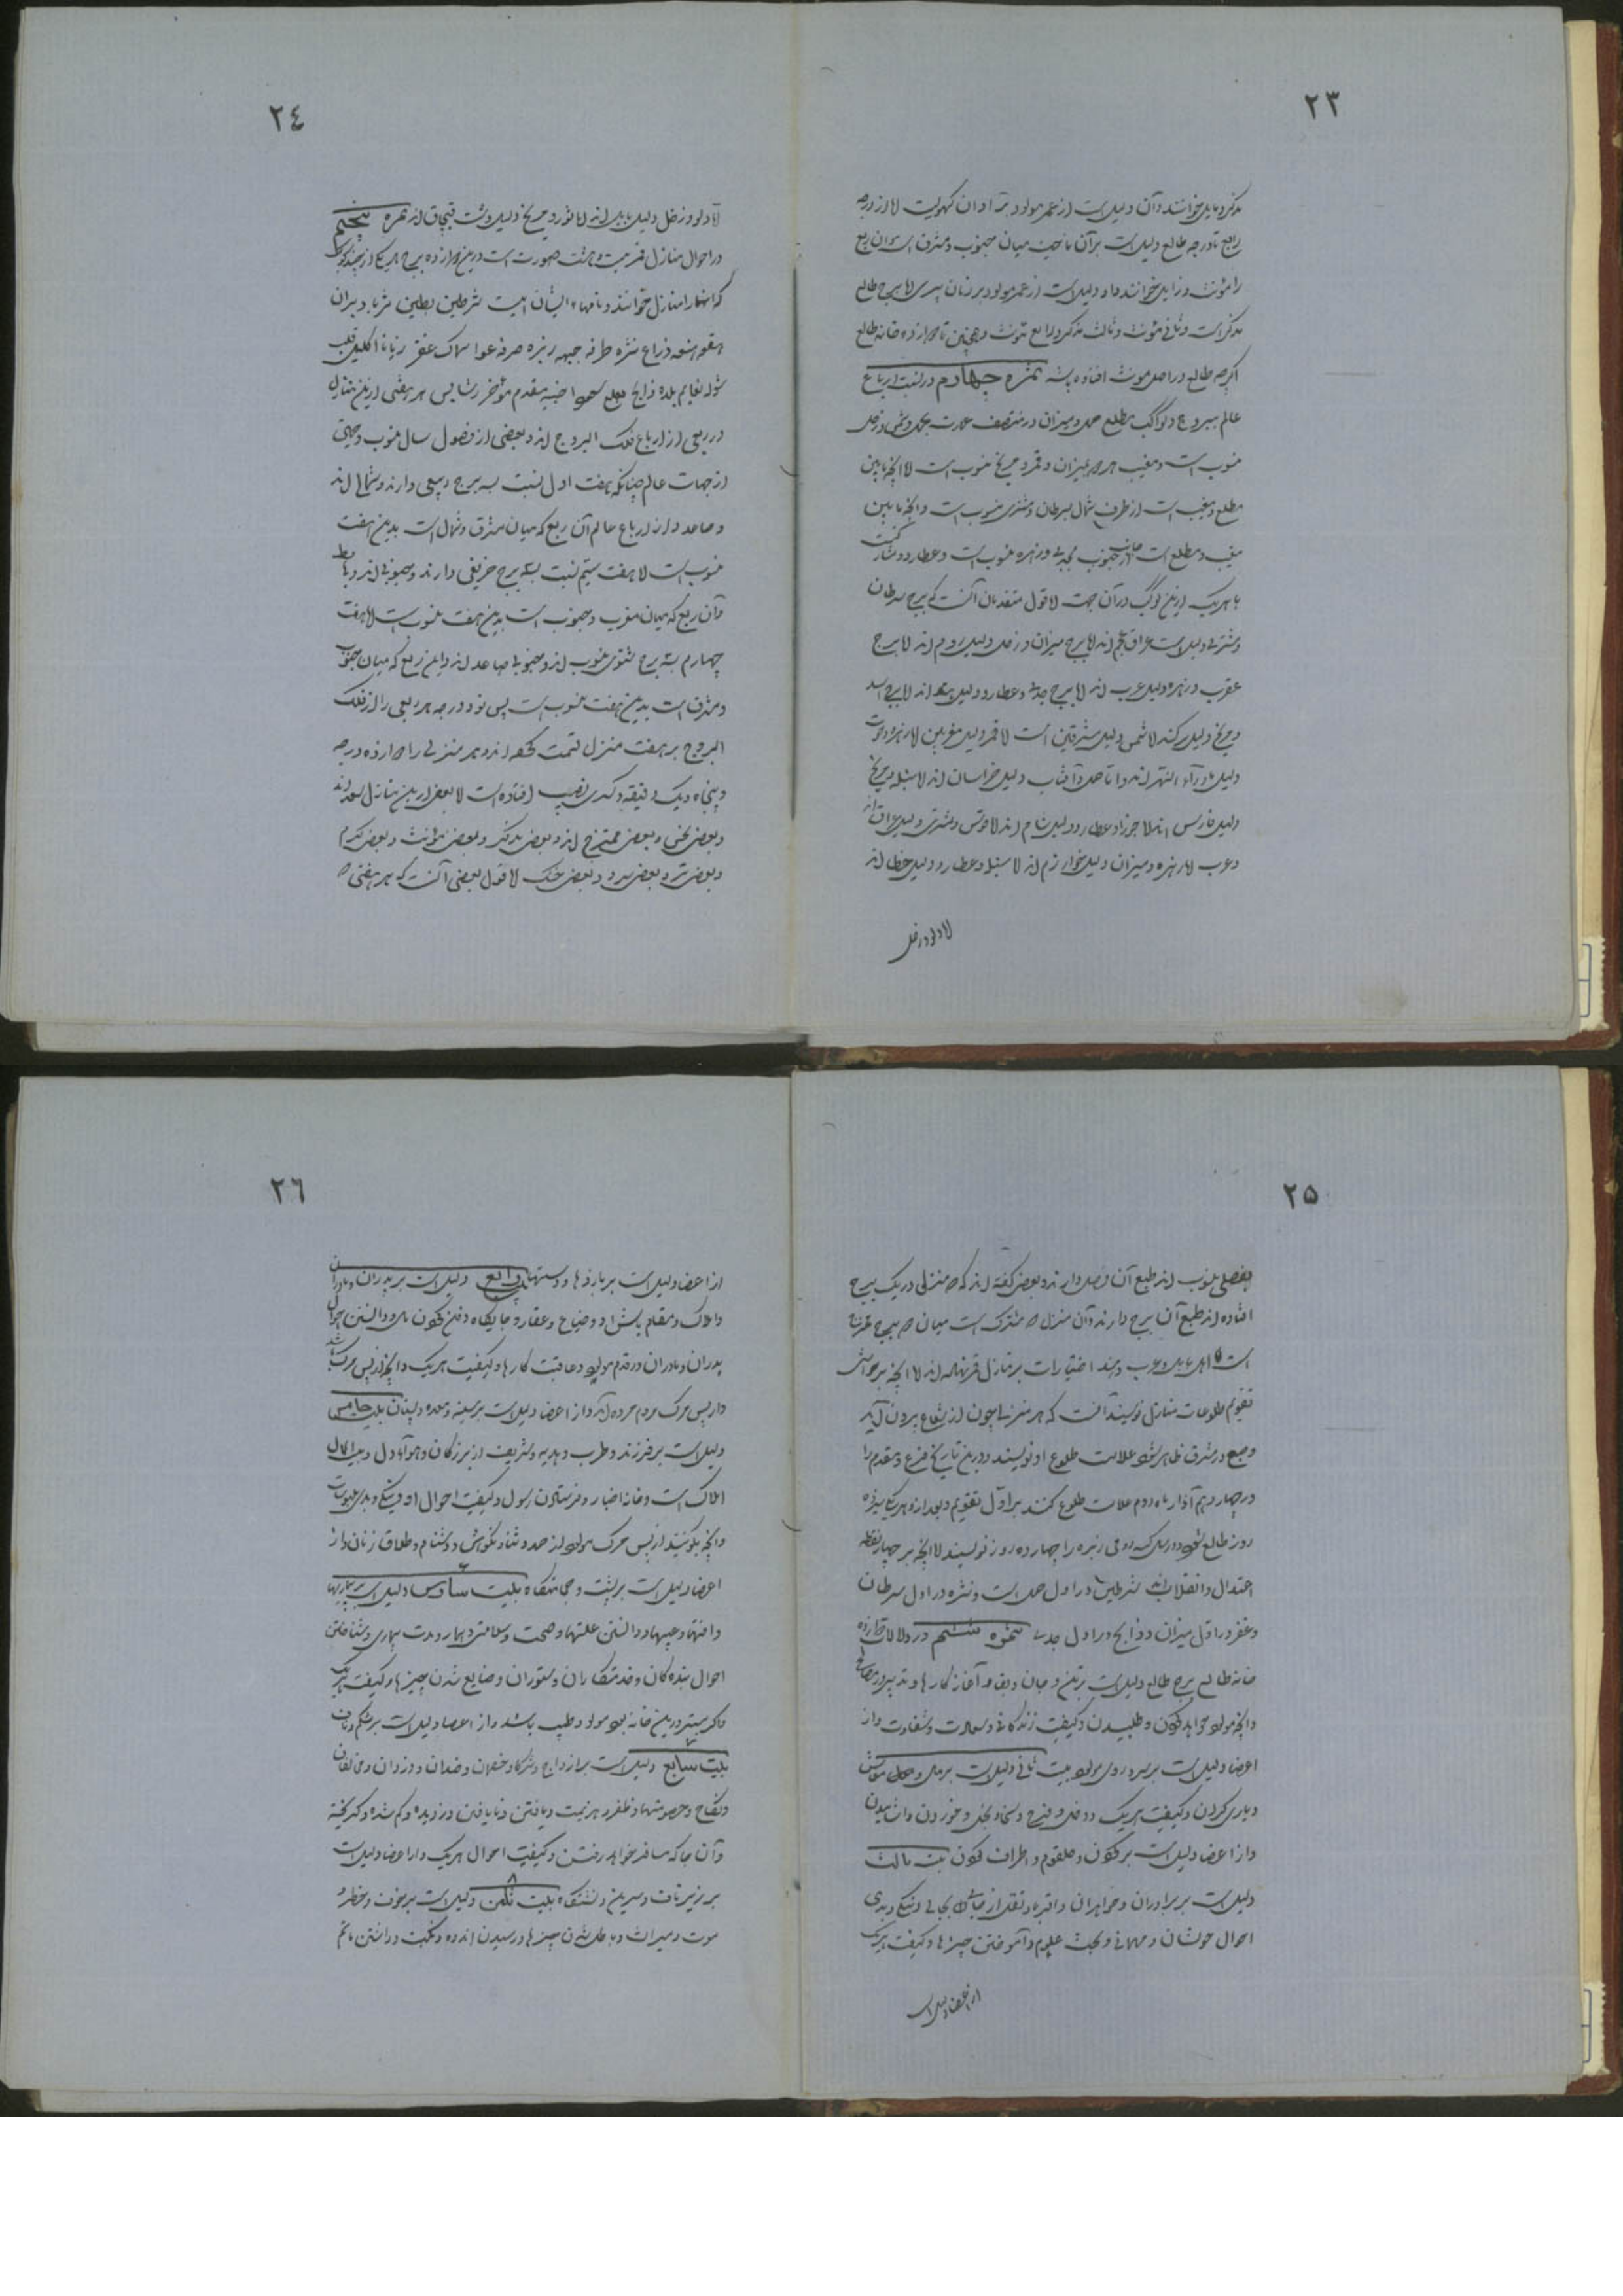 ۲۳
مذکر و مایل خوانند و آن دلیل است از عمر مولود بر آوان کهولیت لا از درجه
رابع تا درجه طالع دلیل است بر آن ناحیت میان جنوب و مشرق است و آن ربع
را مؤنث و زایل خوانند و او دلیل است از عمر مولود بر زمان پیری لا برج طالع
مذکر است و ثانی مؤنث و ثالث مذکر و رابع مؤنث و همچنین تا دوازده خانه طالع
اگرچه طالع در اصل مونث افتاده باشد ثمره چهارم در نسبت ارباع
عالم ببروج و کواکب مطلع حمل و میزان در منتصف عمارت بحمل و شمس و زحل
منسوب است و مغیب هم میزان و قمر و مریخ منسوب است لا آنچه مابین
مطلع و مغیب است از طرف شمال بسرطان و مشتری منسوب است و آنچه مابین
مغیب و مطلع است از جانب جنوب بجدی و زهره منسوب است و عطارد مشارکست
با هر یک ازین کواکب در آن جهت لا قول متقدمان آنست که برج سرطان
و مشتری دلیل است عراق عجم اند لا برج میزان و زحل دلیل روم اند لا برج
عقرب و زهره دلیل عرب اند لا برج جدی و عطارد دلیل هند اند لا برج اسد
و مریخ دلیل ترک اند لا شمس دلیل مشرقین است لا قمر دلیل مغربین لا زهره و حوت
دلیل ماوراء النهر اند و اما حمل و آفتاب دلیل خراسان اند لا سنبله و مریخ
دلیل فارس اند لا جوزا و عطارد دلیل شام اند لا قوس و مشتری دلیل عراق اند
و عرب لا زهره و میزان دلیل خوارزم اند لا سنبله و عطارد دلیل خطا اند
لا دلو و زحل
۲٤
لا دلو و زحل دلیل بابل اند لا ثور و مریخ دلیل دشت قبچاق اند ثمره پنجم
در احوال منازل قمر بیست و هشت صورت است درین دوازده برج هر یکی از چند کوکب
که آنها را منازل خوانند و نامهاء ایشان اینست شرطین بطین ثریا دبران
هقعه هنعه ذراع نثره طرفه جبهه زبره صرفه عوا سماک غفر زبانا اکلیل قلب
شوله نعایم بلده ذابح بلع سعود اخبیه مقدم مؤخر رشا پس هر هفتی ازین منازل
در ربعی از ارباع فلک البروج اند و ببعضی از فصول سال منسوب و جهتی
از جهات عالم چنانکه هفت اول نسبت بسه برج ربیعی دارند و شمالی اند
و صاعد و از ارباع عالم آن ربع که میان مشرق و شمال است بدین هفت
منسوب است لا هفت سیم نسبت بسه برج خریفی دارند و جنوبی اند و هابط
و آن ربع که میان مغرب و جنوب است بدین هفت منسوب است لا هفت
چهارم بسه برج شتوی منسوب اند و جنوبی صاعد اند و این ربع که میان جنوب
و مشرق است بدین هفت منسوب است پس نود درجه هر ربعی را از فلک
البروج بر هفت منزل قسمت کرده اند و هر منزلی را دوازده درجه
و پنجاه و یک دقیقه و کسری نصیب افتاده است لا بعض ازین منازل سعد اند
و بعض نحس و بعض ممتزج اند و بعض مذکر و بعض مؤنث و بعض گرم
و بعض تر و بعض سرد و بعض خشک لا قول بعضی آنست که هر هفتی
۲۵
بفصلی منسوب اند طبع آن فصل دارند و بعض گفته اند که هر منزلی در یک برج
افتاده اند طبع آن برج دارند و آن منزل که مشترک است میان دو برج ممتزج
است اهل بابل و عرب و هند اختیارات بر منازل قمر نهاده اند لا آنچه بر حواشی
تقویم طلوعات منازل نویسند آنست که هر منزلها چون از شعاع برون آید
و صبح در مشرق ظاهر شود علامت طلوع او نویسند و درین تاریخ فرغ مقدم را
در چهاردهم آذار ماه روم علامت طلوع کنند بر اول تقویم و بعد از او هر یکی سیزده
روز طالع شود و در سال کبیسه رومی زبره را چهارده روز نویسند لا آنچه بر چهار نقطه
اعتدال و انقلاب اند شرطین در اول حمل است و نثره در اول سرطان
و غفر در اول میزان و ذابح در اول جدی ثمره ششم در دلالات دوازده
خانه طالع برج طالع دلیل است بر تن و جان و بقا و آغاز کارها و تدبیر و مصالح
و آنچه مولود خواهد کردن و طلبیدن و کیفیت زندگانی و سعادت و شقاوت و از
اعضا دلیل است بر سر و روی مولود بیت ثانی دلیل است بر مال و معاش
و یاری کردن و کیفیت هر یک و دخل و خرج و سخا و بخل و خوردن و آشامیدن
و از اعضا دلیل است بر گردن و حلقوم و اطراف گردن بیت ثالث
دلیل است بر برادران و خواهران و اقربا و نقل از جائی بجائی و نیکی و بدی
احوال خوشان و مهمانی و بحث علوم و آموختن چیزها و کیفیت هر یک
از اعضا دلیل است
۲٦
از اعضا دلیل است بر بازوها و دستها بیت رابع دلیل است بر پدران و مادران
و املاک و مقام باش او و ضیاع و عقار و جایگاه دفن کردن مال و دانستن احوال
پدران و مادران و قدم مولود و عاقبت کارها و کیفیت هر یک و آنچه از پس مرگ باشد
و از پس مرگ مردم مرده آید و از اعضا دلیل است بر سینه و معده و پستان بیت خامس
دلیل است بر فرزند و طرب و هدیه و تشریف از بزرگان و هواء دل و میراث
املاک است و خانه اخبار و فرستادن رسول و کیفیت احوال او و نیکی و بدی ملبوسات
و آنچه بگویند از پس مرگ مولود از حمد و ثنا و نکوهش و دشنام و طلاق زنان و از
اعضا دلیل است بر پشت و میانگاه بیت سادس دلیل است بر بیماریها
و آفتها و عیبها و دانستن علتها و صحت و سلامتی و بیمار و مدت بیماری و شناختن
احوال بنده گان و خدمتکاران و ستوران و ضایع شدن چیزها و کیفیت هر یک
و اکر بهتر درین خانه بود مولود طبیب باشد و از اعضا دلیل است بر شکم و ناف
بیت سابع دلیل است بر ازدواج و شرکا و خصمان و ضدان و دزدان و مخالفان
و نکاح و خصومتها و ظفر و هزیمت و یافتن و نایافتن دزدیده و گم شده و گریخته
و آن جا که مسافر خواهد رفتن و کیفیت احوال هر یک و از اعضا دلیل است
بر زیر ناف و سرین و نشستگاه بیت ثامن دلیل است بر خوف و خطر و
موت و میراث و باطل شدن چیزها و رسیدن اندوه و نکبت و داشتن ماتم